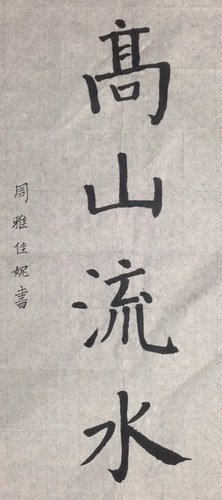 髙山流水
周雅佳妮書